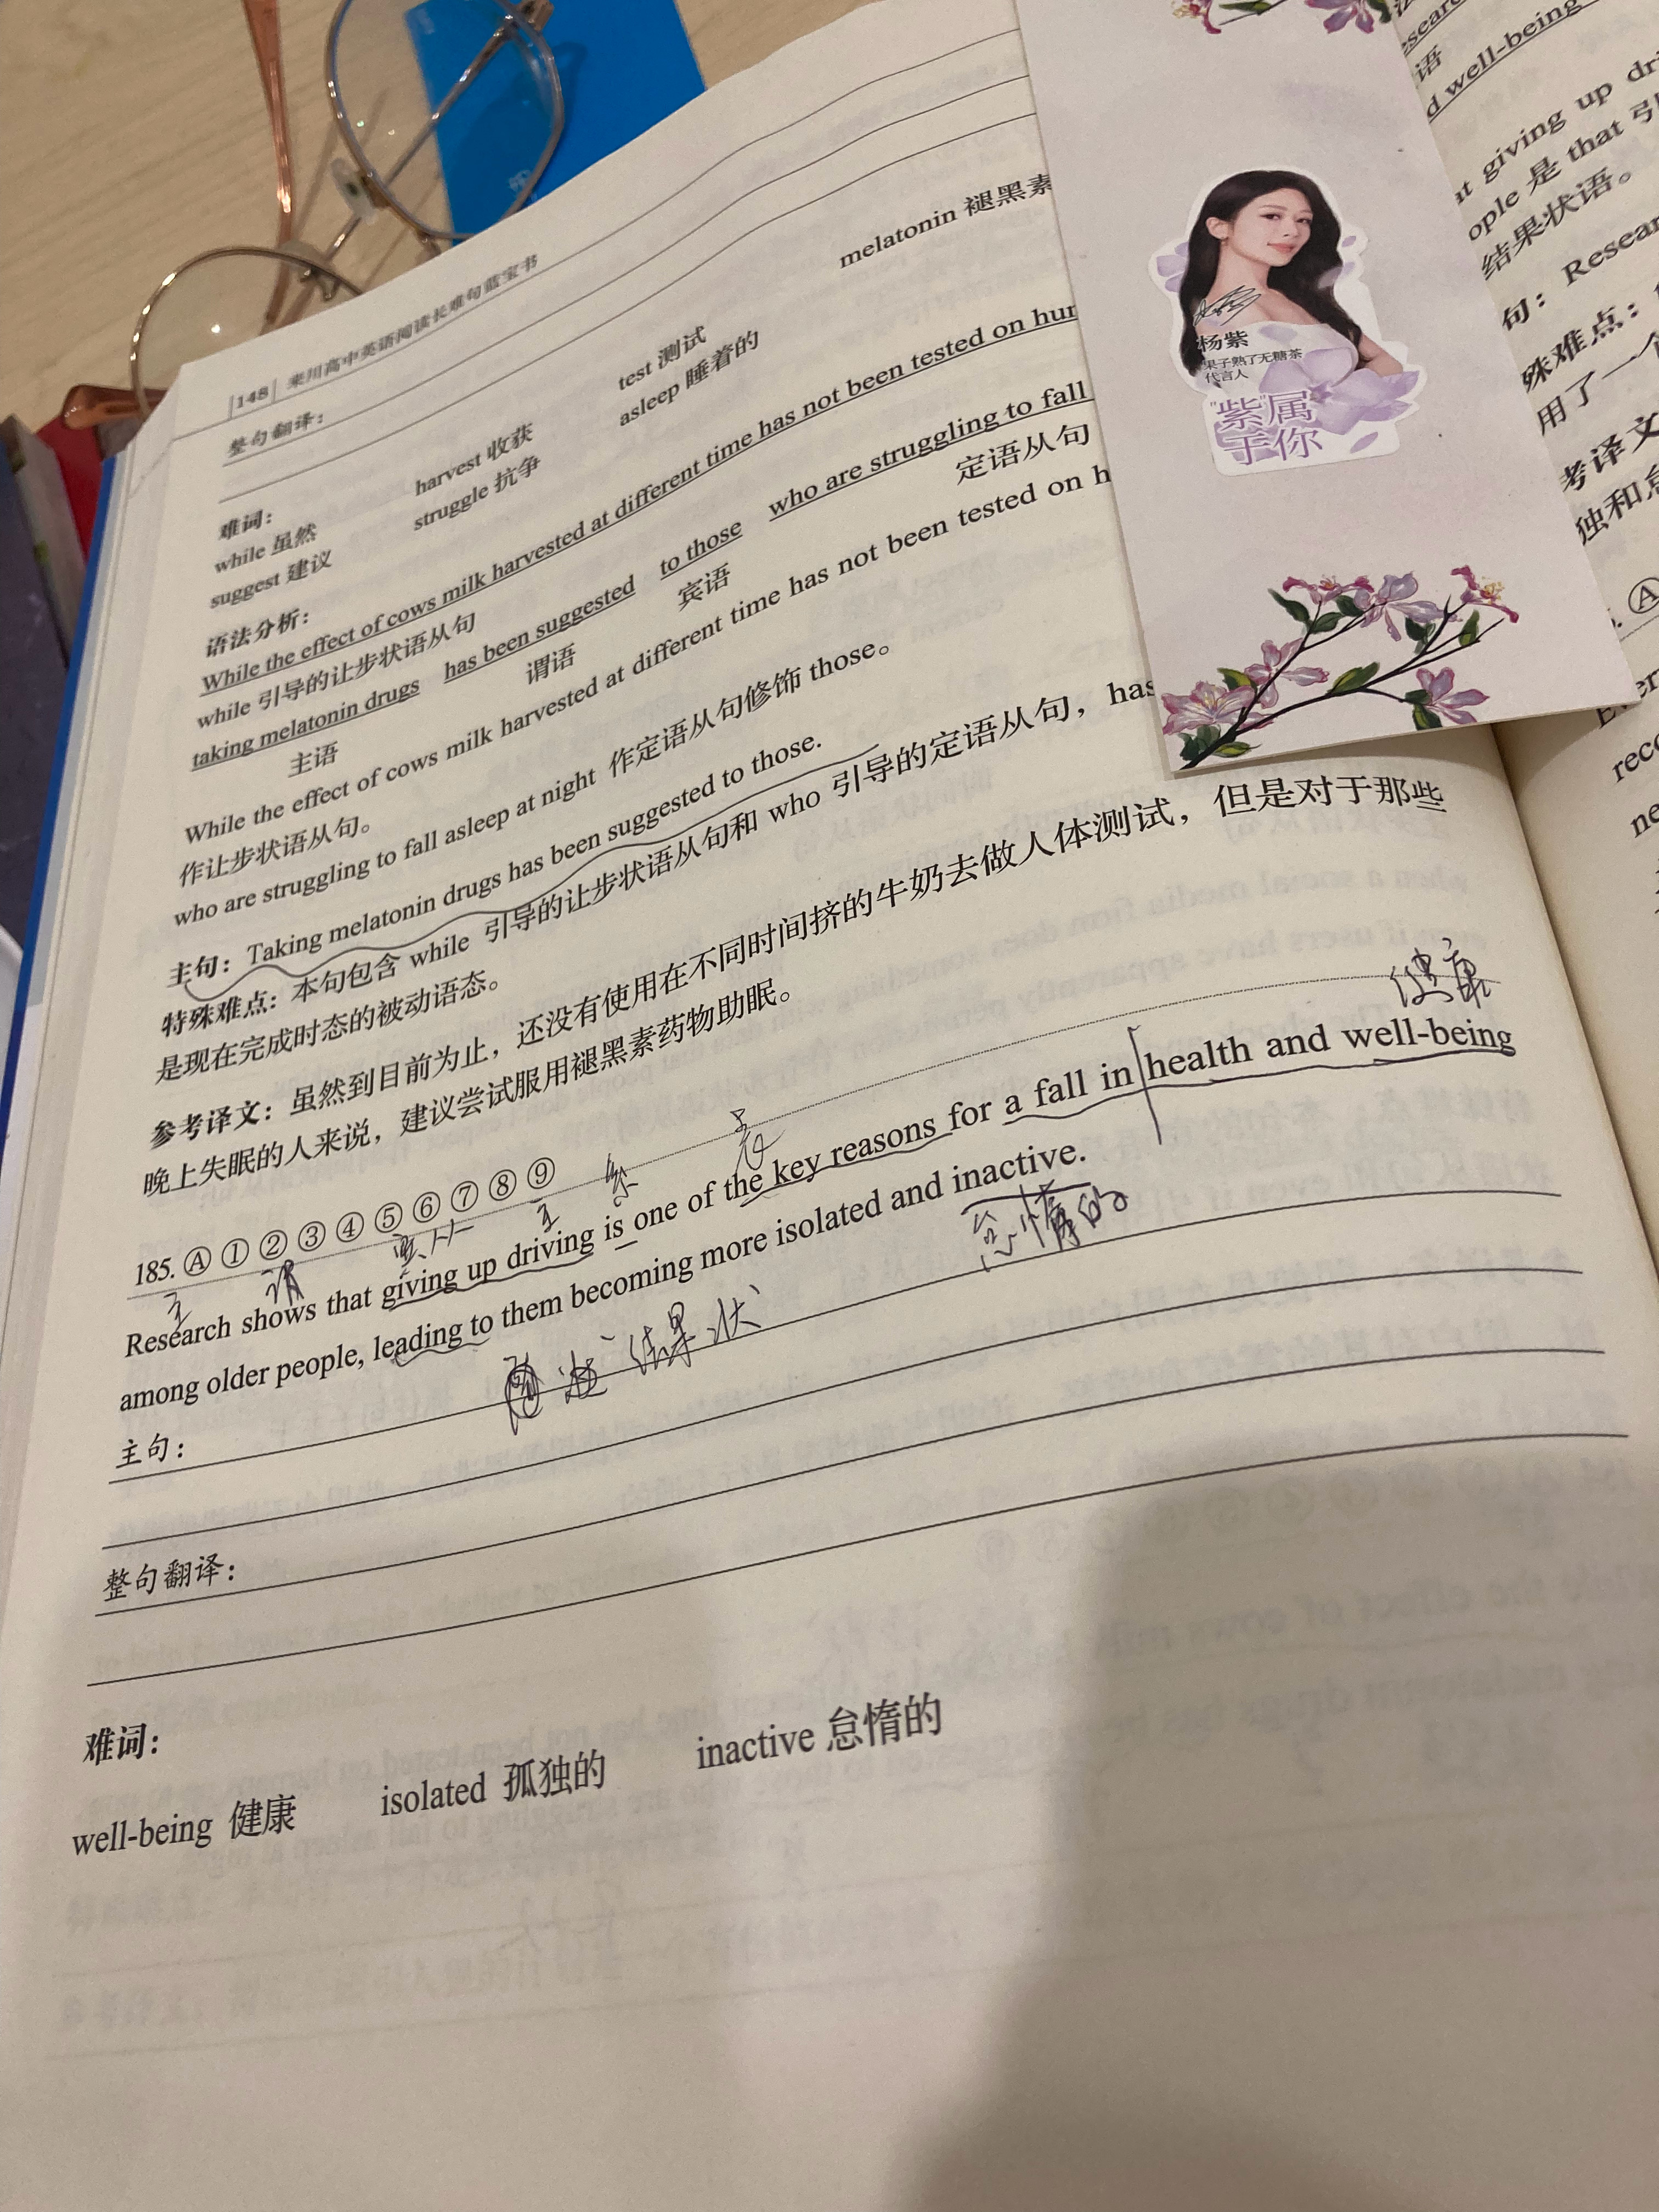 |148| 来川高中英语阅读长难句蓝宝书
整句翻译：
难词：
while 虽然 harvest 收获 test 测试 melatonin 褪黑素
suggest 建议 struggle 抗争 asleep 睡着的
语法分析：
While the effect of cows milk harvested at different time has not been tested on hum
while 引导的让步状语从句
taking melatonin drugs has been suggested to those who are struggling to fall
主语 谓语 宾语 定语从句
While the effect of cows milk harvested at different time has not been tested on h
作让步状语从句。
who are struggling to fall asleep at night 作定语从句修饰 those。
主句：Taking melatonin drugs has been suggested to those.
特殊难点：本句包含 while 引导的让步状语从句和 who 引导的定语从句，has
是现在完成时态的被动语态。
参考译文：虽然到目前为止，还没有使用在不同时间挤的牛奶去做人体测试，但是对于那些
晚上失眠的人来说，建议尝试服用褪黑素药物助眠。
185. Ⓐ ① ② ③ ④ ⑤ ⑥ ⑦ ⑧ ⑨
主 谓 宾从 主 系 表 健康
Research shows that giving up driving is one of the key reasons for a fall in health and well-being
among older people, leading to them becoming more isolated and inactive.
结果状 怠惰的
主句：
整句翻译：
难词：
well-being 健康 isolated 孤独的 inactive 怠惰的
杨紫
果子熟了无糖茶
代言人
"紫"属
于你
语
d well-being
giving up
ople 是 that 引
结果状语。
句：Resear
殊难点：
用了一个
考译文
独和怠
Ⓐ